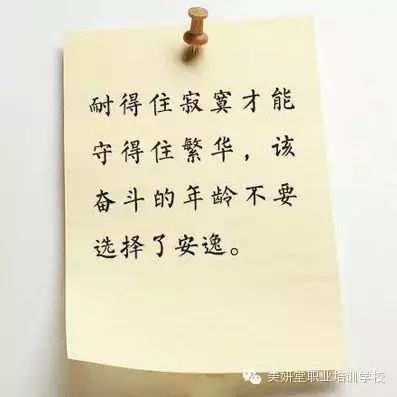 耐得住寂寞才能
守得住繁华，该
奋斗的年龄不要
选择了安逸。
美妍堂职业培训学校